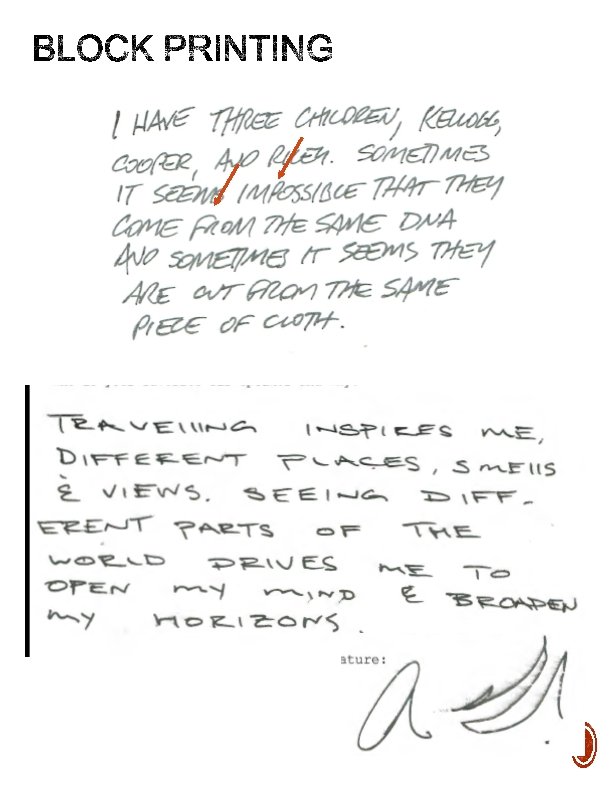 BLOCK PRINTING
I HAVE THREE CHILDREN, KELLOGG,
COOPER, AND RILEY. SOMETIMES
IT SEEMS IMPOSSIBLE THAT THEY
COME FROM THE SAME DNA
AND SOMETIMES IT SEEMS THEY
ARE CUT FROM THE SAME
PIECE OF CLOTH.
TRAVELLING INSPIRES ME,
DIFFERENT PLACES, SMELLS
& VIEWS. SEEING DIFF-
ERENT PARTS OF THE
WORLD DRIVES ME TO
OPEN MY MIND & BROADEN
MY HORIZONS.
ature: